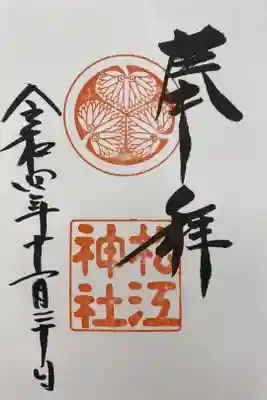 奉拝
松江
神社
令和四年十一月二十日